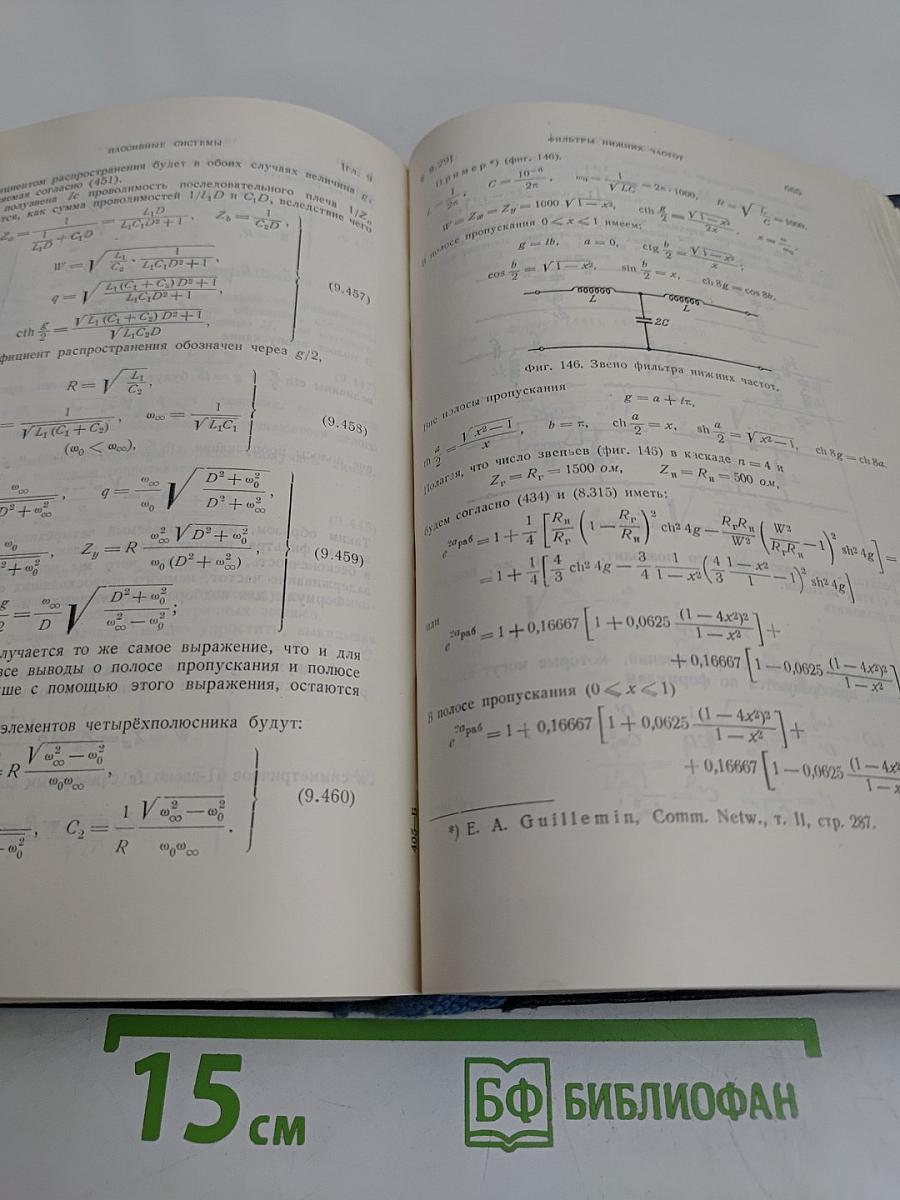 ПАССИВНЫЕ СИСТЕМЫ [гл. 9
ициентом распространения будет в обоих случаях величина g,
согласно (451).
проводимость последовательного плеча 1/Zₐ
как сумма проводимостей 1/L₁D и C₁D, вследствие чего
Zₐ = 1/(1/(L₁D) + C₁D) = L₁D/(L₁C₁D² + 1), Z_b = 1/(C₂D),
W = √(L₁/C₂ · 1/(L₁C₁D² + 1)),
q = √((L₁(C₁ + C₂)D² + 1)/(L₁C₁D² + 1)), (9.457)
cth g/2 = √(L₁(C₁ + C₂)D² + 1)/(√(L₁C₂)D),
фициент распространения обозначен через g/2,
R = √(L₁/C₂),
= 1/√(L₁(C₁ + C₂)), ω∞ = 1/√(L₁C₁) (9.458)
(ω₀ < ω∞),
q = ω∞/ω₀ √((D² + ω₀²)/(D² + ω∞²)),
Z_y = R ω∞²√(D² + ω₀²)/(ω₀(D² + ω∞²)), (9.459)
g/2 = ω∞/D √((D² + ω₀²)/(ω∞² − ω₀²));
лучается то же самое выражение, что и для
все выводы о полосе пропускания и полюсе
ше с помощью этого выражения, остаются
элементов четырёхполюсника будут:
= R √(ω∞² − ω₀²)/(ω₀ω∞),
C₂ = 1/R √(ω∞² − ω₀²)/(ω₀ω∞). (9.460)
§ 9.29] ФИЛЬТРЫ НИЖНИХ ЧАСТОТ 665
Пример*) (фиг. 146).
L = 1/2π, C = 10⁻⁶/2π, ω₀ = 1/√(LC) = 2π·1000, R = √(L/C) = 1000,
W = Z_w = Z_y = 1000 √(1 − x²), cth g/2 = √(1 − x²)/2x, x = ω/ω₀.
В полосе пропускания 0 ⩽ x ⩽ 1 имеем:
g = ib, a = 0, ctg b/2 = √(1 − x²)/x;
cos b/2 = √(1 − x²), sin b/2 = x, ch 8g = cos 8b.
L
L
2C
Фиг. 146. Звено фильтра нижних частот.
Вне полосы пропускания
g = a + iπ,
th a/2 = √(x² − 1)/x, b = π, ch a/2 = x, sh a/2 = √(x² − 1), ch 8g = ch 8a.
Полагая, что число звеньев (фиг. 146) в каскаде n = 4 и
Z_г = R_г = 1500 ом, Z_н = R_н = 500 ом,
будем согласно (434) и (8.315) иметь:
e^(2a_раб) = 1 + 1/4 [R_н/R_г (1 − R_г/R_н)² ch² 4g − R_гR_н/W² (W²/(R_гR_н) − 1)² sh² 4g] =
= 1 + 1/4 [4/3 ch² 4g − 3/4 1/(1 − x²) (4/3 (1 − x²)/1 − 1)² sh² 4g]
или
e^(2a_раб) = 1 + 0,16667 [1 + 0,0625 (1 − 4x²)²/(1 − x²)] +
+ 0,16667 [1 − 0,0625 (1 − 4x²)²/(1 − x²)
В полосе пропускания (0 ⩽ x ⩽ 1)
e^(2a_раб) = 1 + 0,16667 [1 + 0,0625 (1 − 4x²)²/(1 − x²)] +
+ 0,16667 [1 − 0,0625 (1 − 4x²
*) E. A. Guillemin, Comm. Netw., т. II, стр. 287.
15 см
БФ БИБЛИОФАН